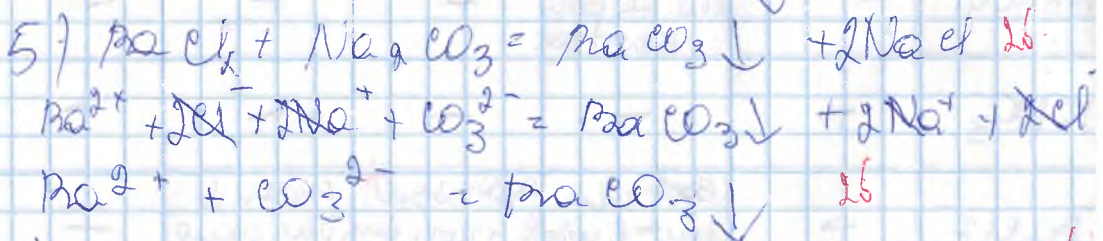 5) BaCl₂ + Na₂CO₃ = BaCO₃↓ + 2NaCl 2б.
Ba²⁺ + 2Cl⁻ + 2Na⁺ + CO₃²⁻ = BaCO₃↓ + 2Na⁺ + 2Cl⁻
Ba²⁺ + CO₃²⁻ = BaCO₃↓ 2б